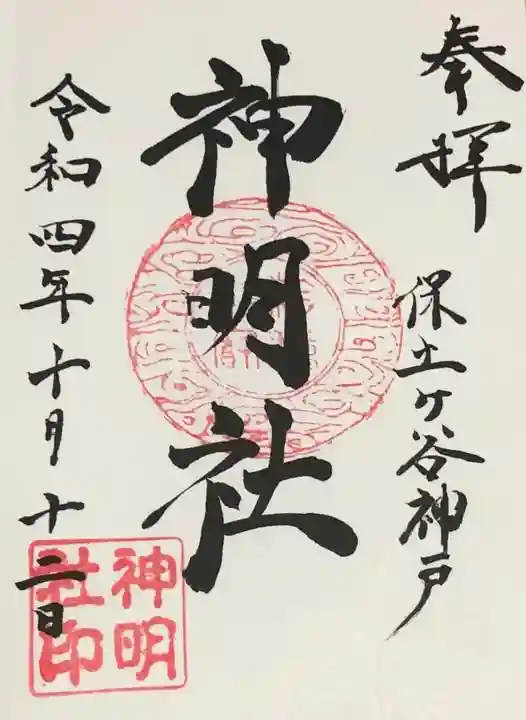 奉拝
保土ケ谷神戸
神明社
令和四年十月十二日
神明
社印